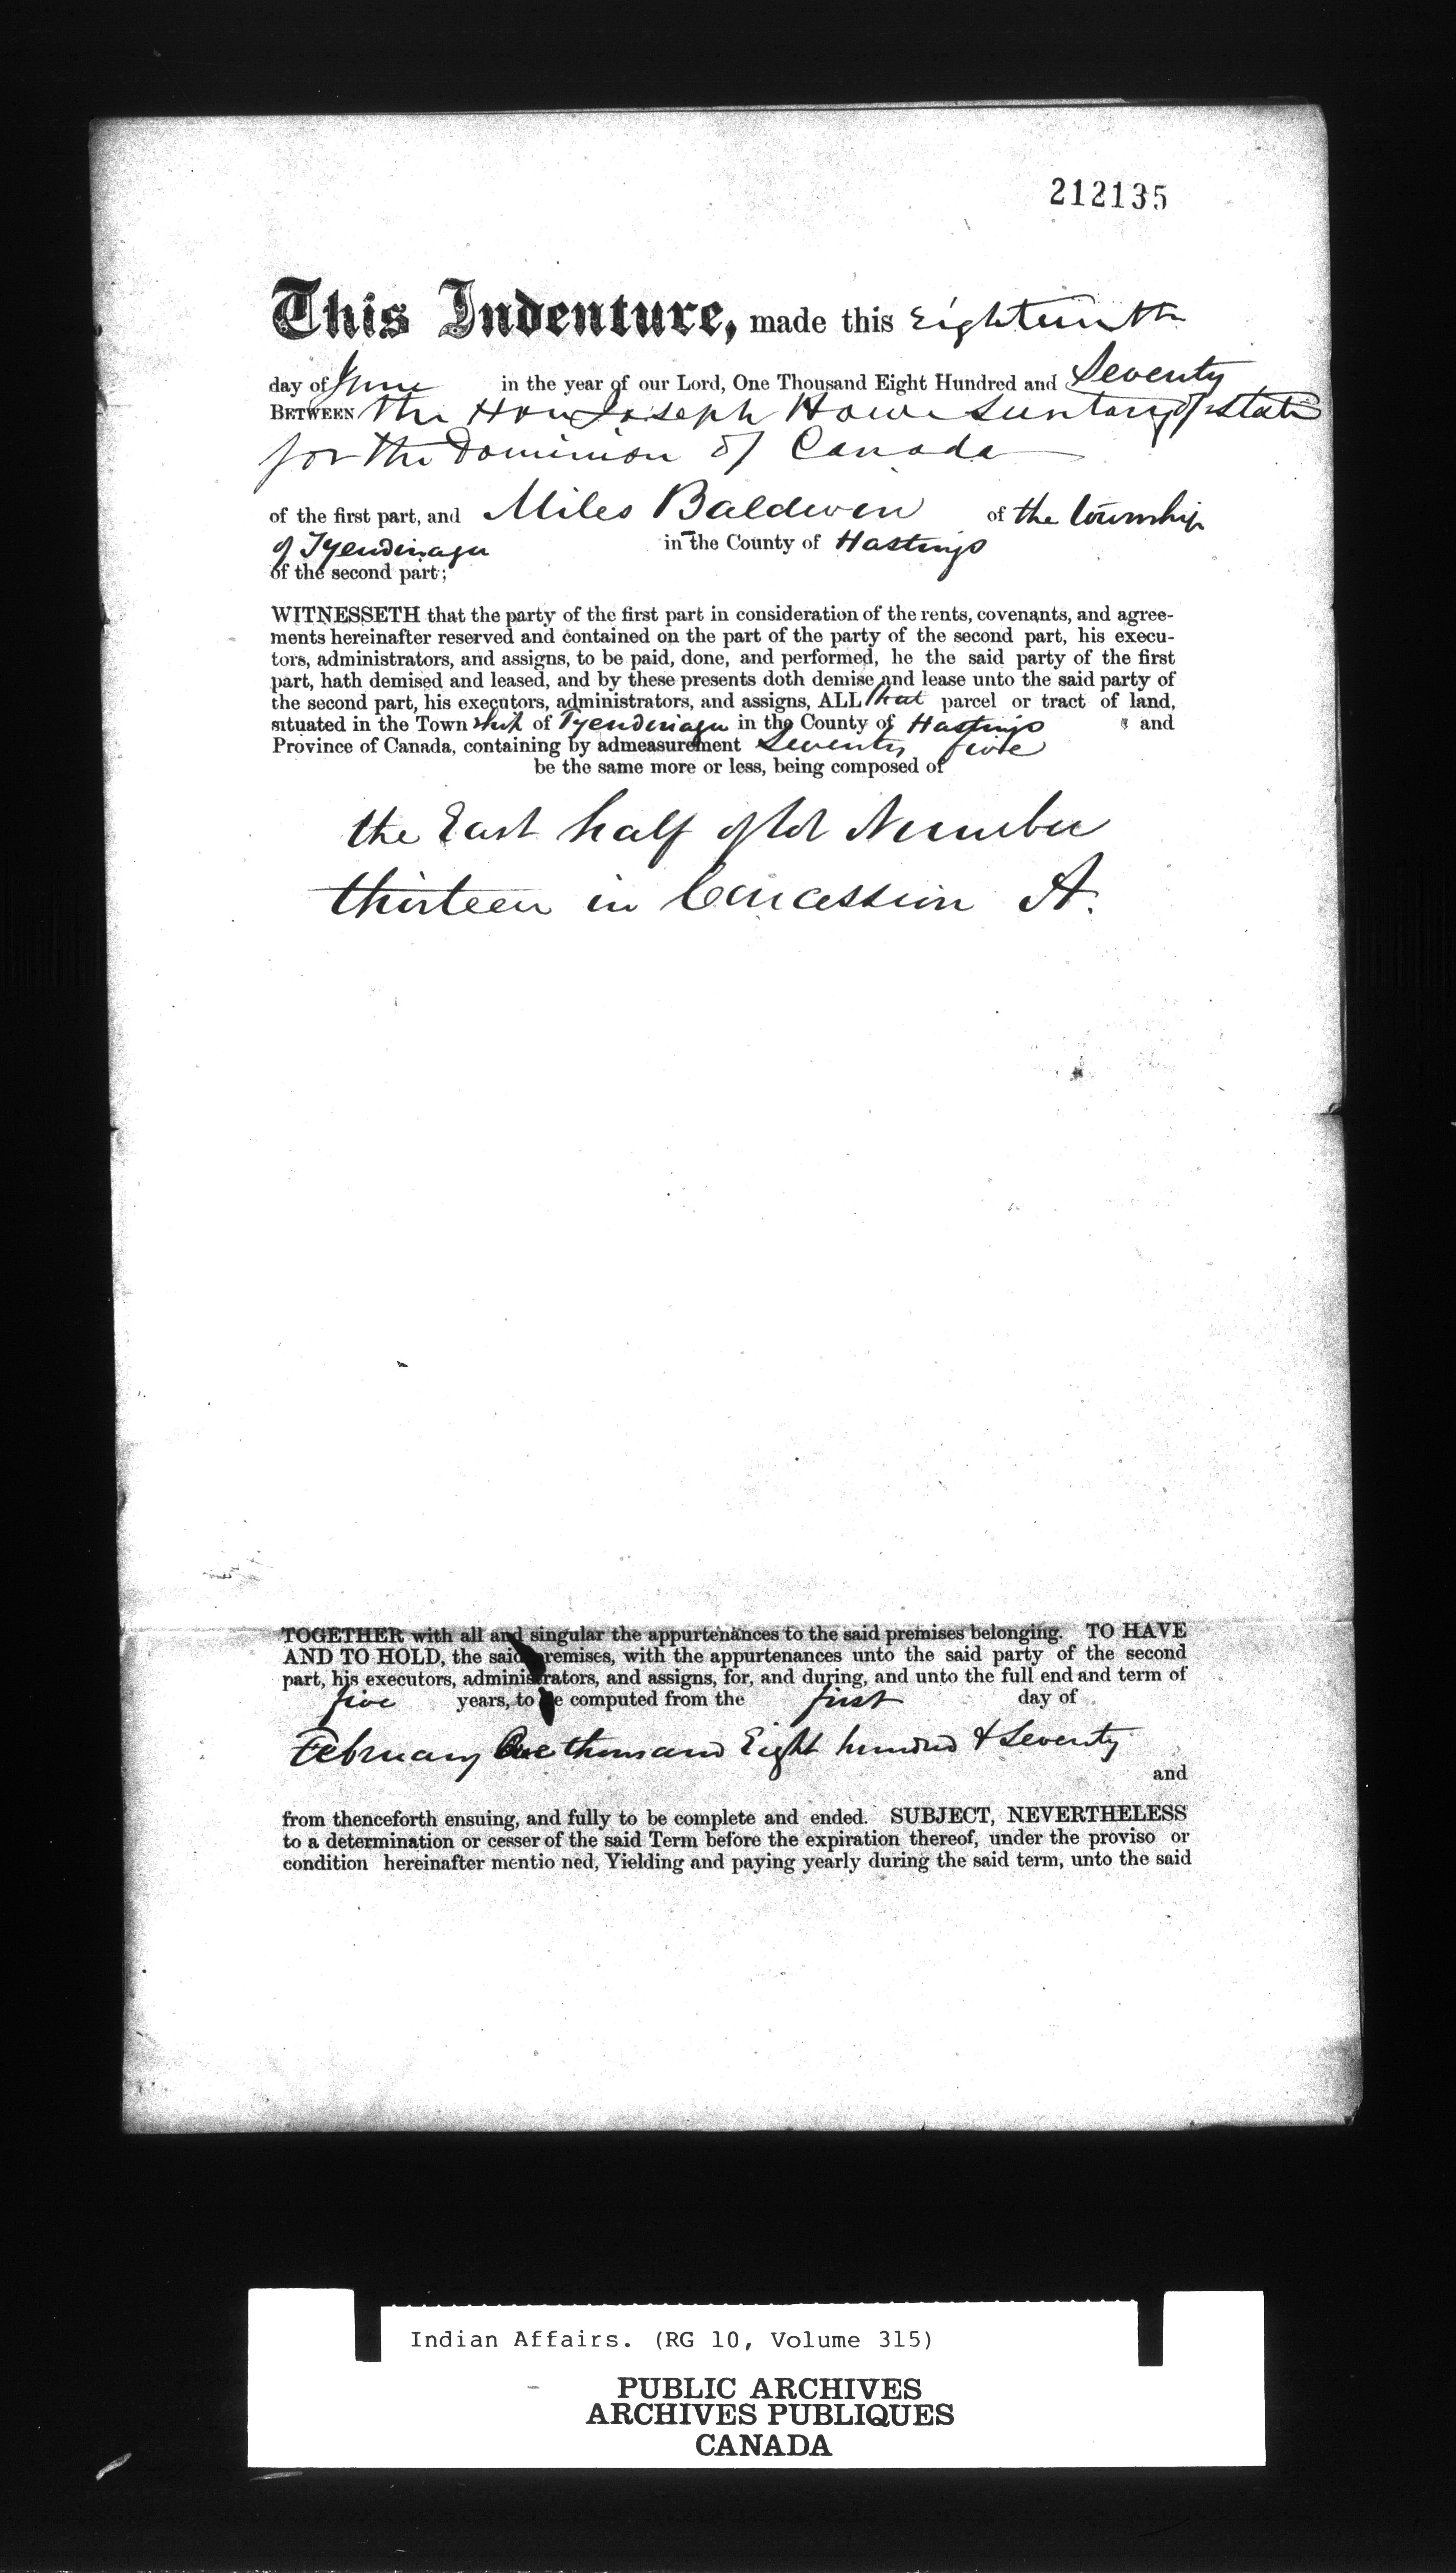 212135
This Indenture, made this Eighteenth
day of June in the year of our Lord, One Thousand Eight Hundred and Seventy
BETWEEN the Hon Joseph Howe Secretary of State
for the Dominion of Canada
of the first part, and Miles Baldwin of the township
of Tyendinaga in the County of Hastings
of the second part;
WITNESSETH that the party of the first part in consideration of the rents, covenants, and agree-
ments hereinafter reserved and contained on the part of the party of the second part, his execu-
tors, administrators, and assigns, to be paid, done, and performed, he the said party of the first
part, hath demised and leased, and by these presents doth demise and lease unto the said party of
the second part, his executors, administrators, and assigns, ALL that parcel or tract of land,
situated in the Town ship of Tyendinaga in the County of Hastings and
Province of Canada, containing by admeasurement Seventy five
be the same more or less, being composed of
the East half of lot Number
thirteen in Concession A.
TOGETHER with all and singular the appurtenances to the said premises belonging. TO HAVE
AND TO HOLD, the said premises, with the appurtenances unto the said party of the second
part, his executors, administrators, and assigns, for, and during, and unto the full end and term of
five years, to be computed from the first day of
February One thousand Eight hundred & Seventy
and
from thenceforth ensuing, and fully to be complete and ended. SUBJECT, NEVERTHELESS
to a determination or cesser of the said Term before the expiration thereof, under the proviso or
condition hereinafter mentio ned, Yielding and paying yearly during the said term, unto the said
Indian Affairs. (RG 10, Volume 315)
PUBLIC ARCHIVES
ARCHIVES PUBLIQUES
CANADA